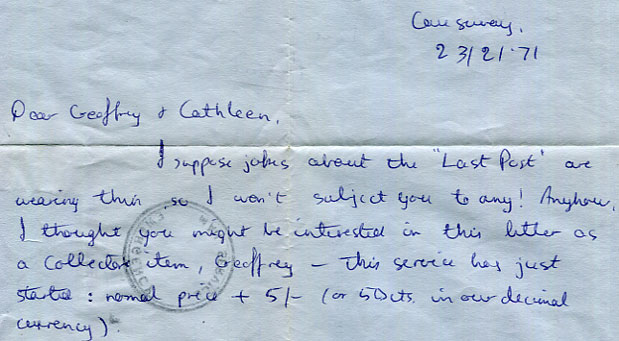 Causeway,
23/2/71
Dear Geoffrey & Cathleen,
I suppose jokes about the "Last Post" are
wearing thin so I won't subject you to any! Anyhow,
I thought you might be interested in this letter as
a collectors item, Geoffrey – this service has just
started : normal price + 5/- (or 50cts. in our decimal
currency).